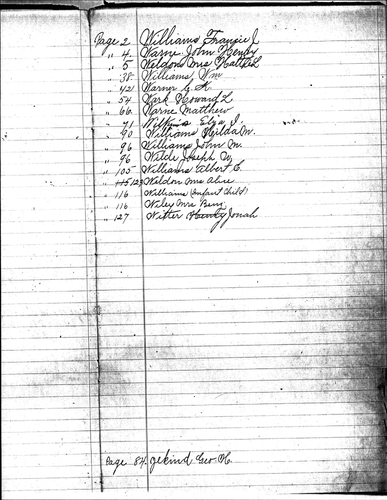 Page 2 Williams Francis J.
" 4 Warne John Henry
" 5 Weldon Mrs
" 38 Williams, Wm
" 42 Warner C. H.
" 54 Wark Howard L.
" 66 Warne Matthew
" 71 Wilkins Elza J.
" 90 Williams Hilda M.
" 96 Williams John M.
" 96 Wilde Joseph W.
" 105 Williams Albert C.
" Weldon Mrs Alice
" 116 Williams (Infant Child)
" 116 Wiley Mrs Benj.
" 127 Witter Jonah
Page 84 Geo.